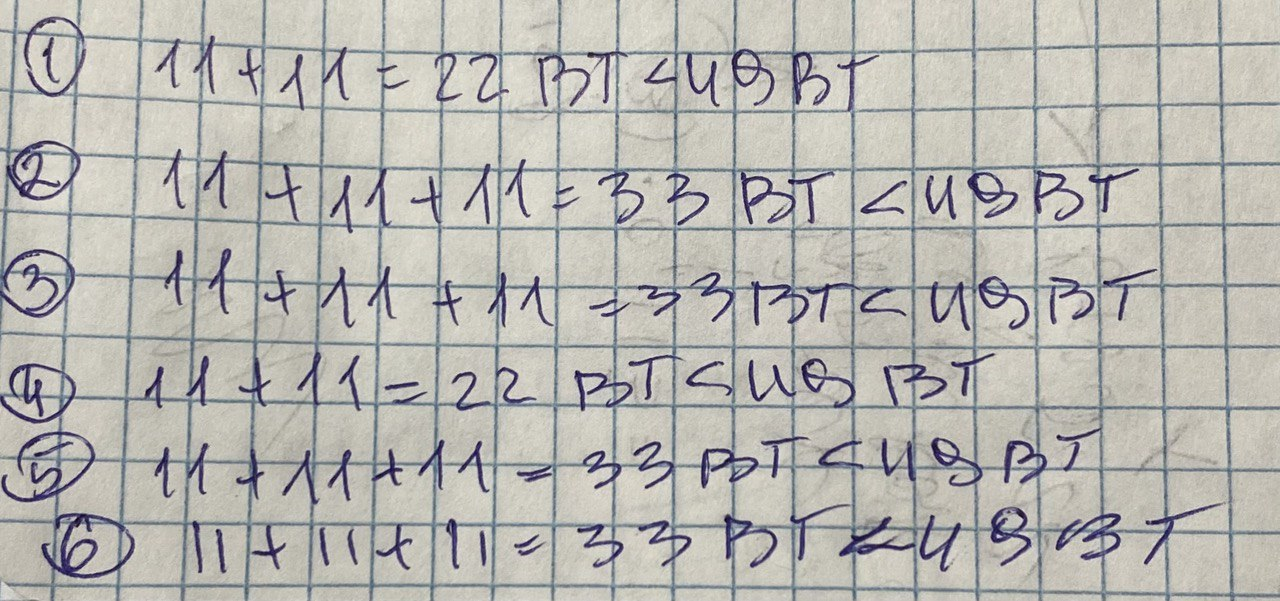 ① 11+11=22 ВТ<49ВТ
② 11+11+11=33 ВТ <49ВТ
③ 11+11+11=33ВТ<49ВТ
④ 11+11=22 ВТ<49 ВТ
⑤ 11+11+11=33 ВТ<49ВТ
⑥ 11+11+11=33 ВТ<49 ВТ